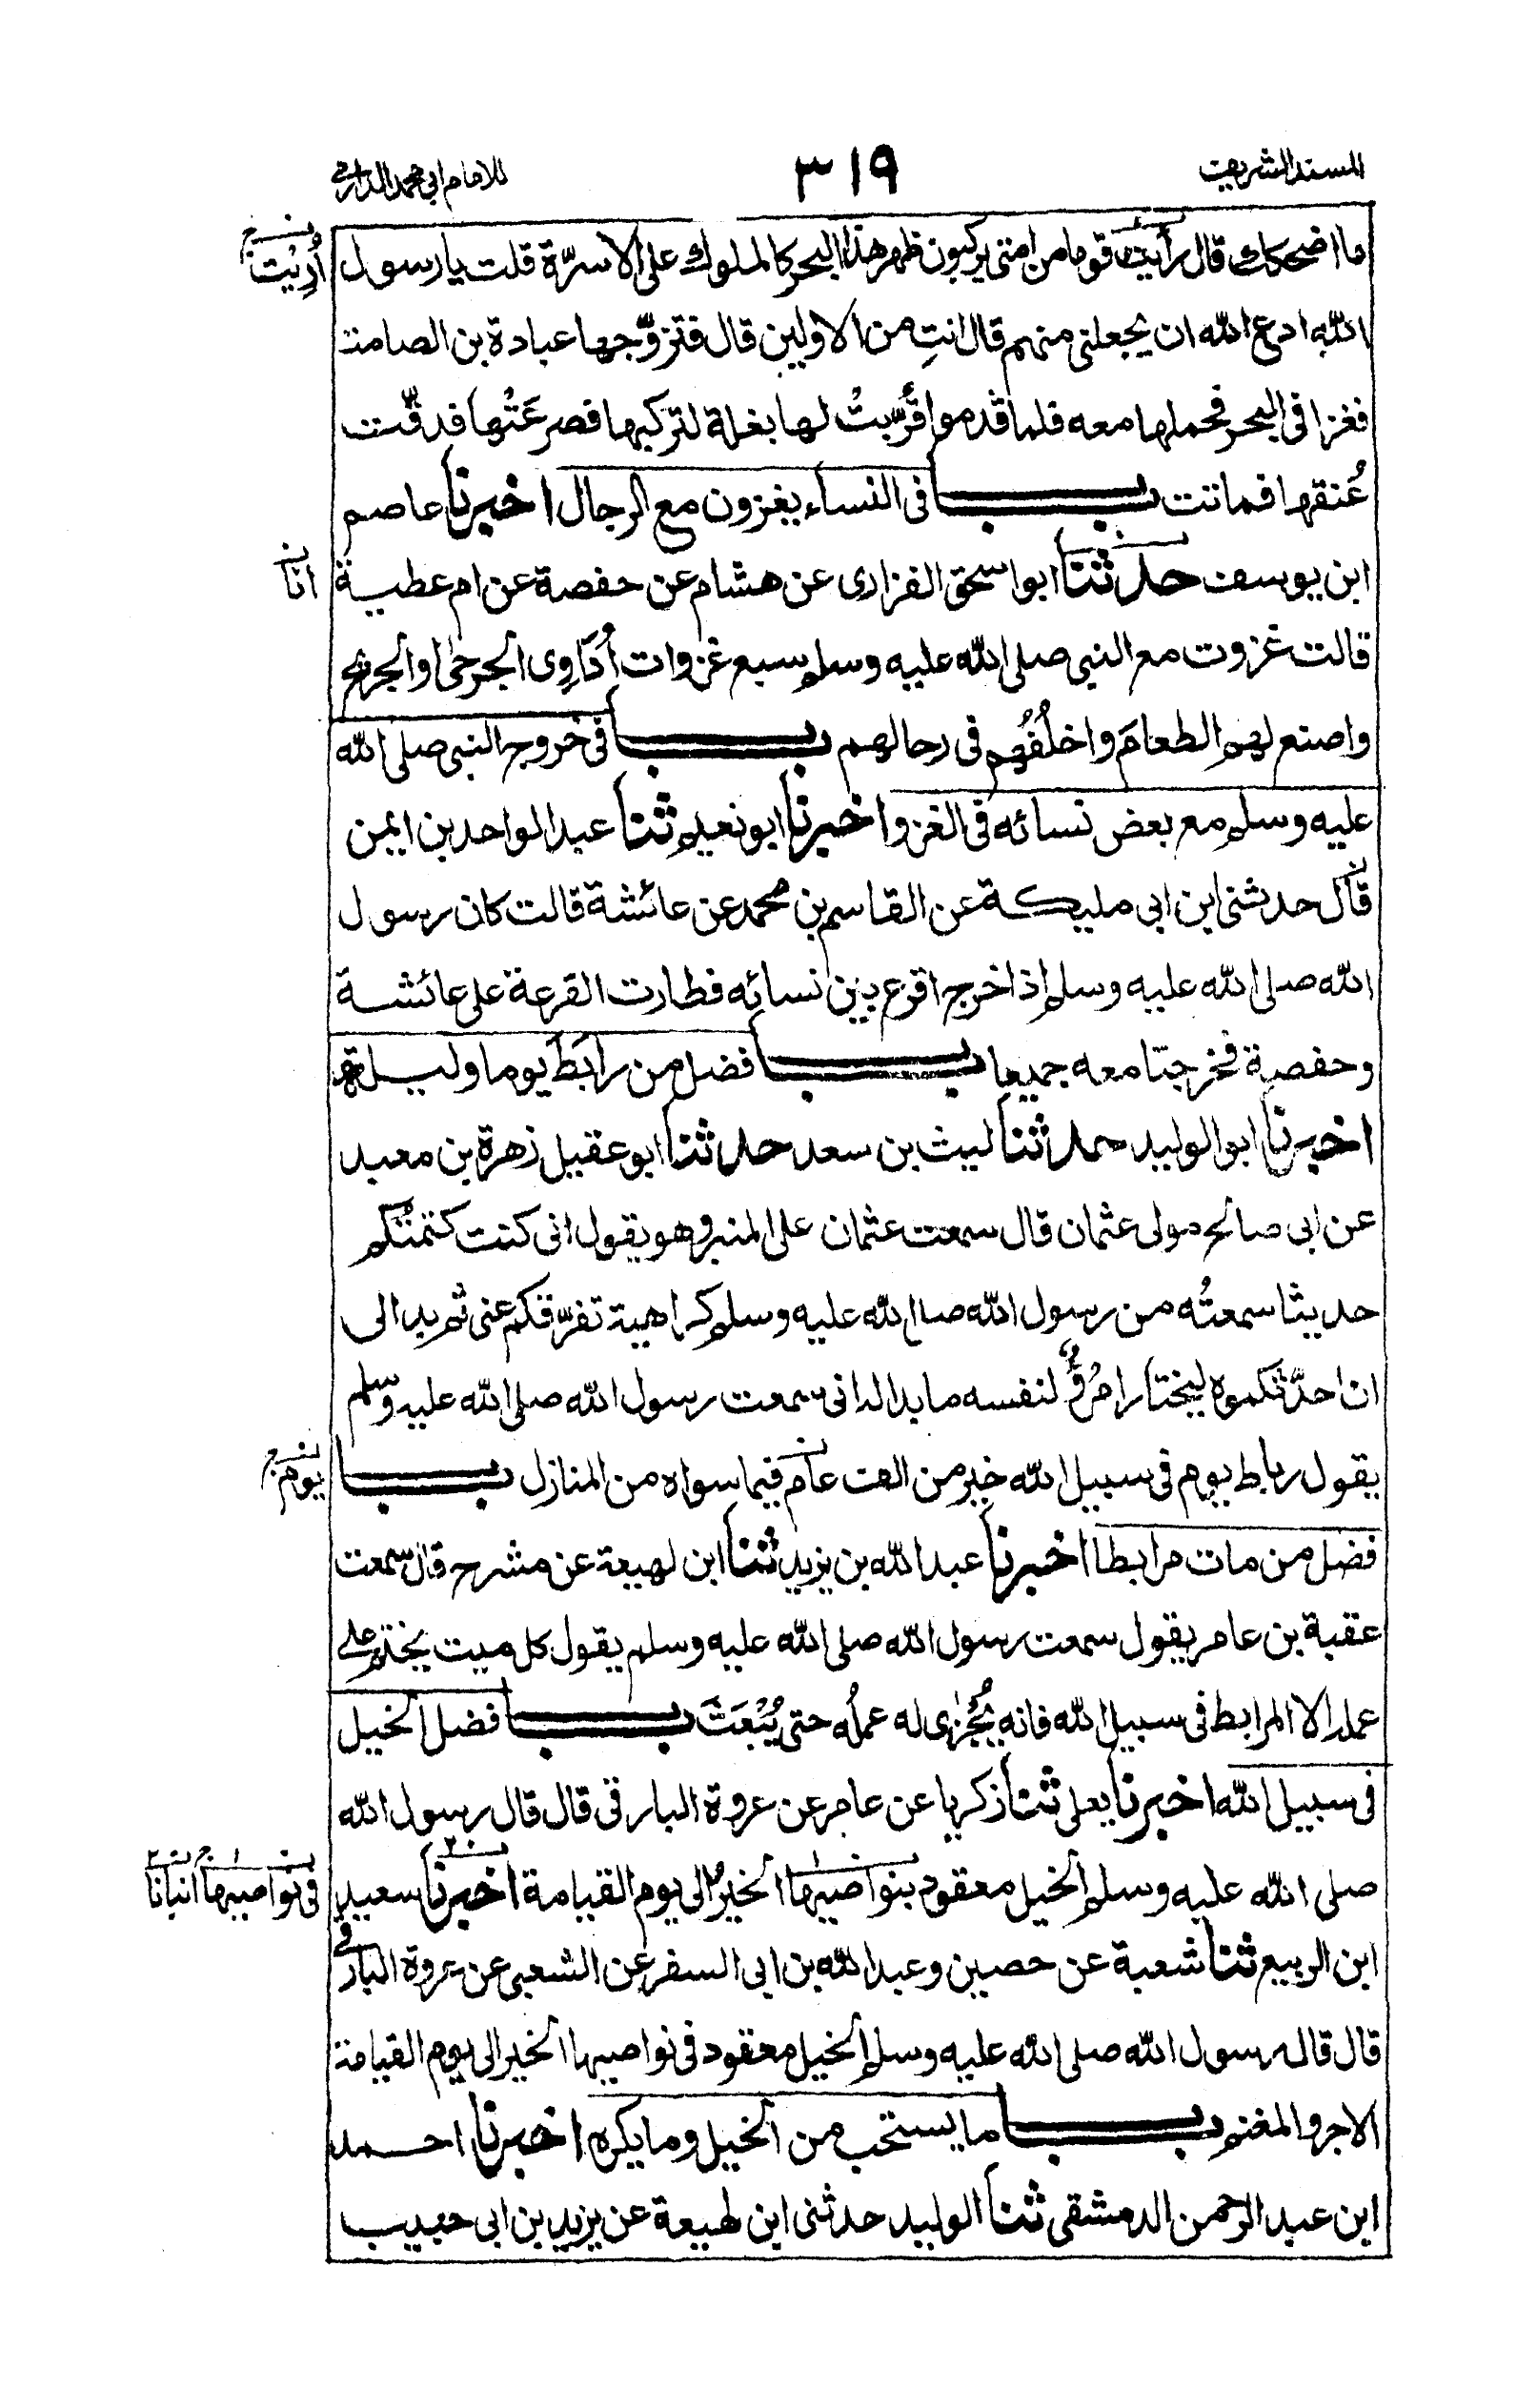 المسند الشريف ٣١٩ للامام ابي محمد الدارمي
ما اضحكك قال رأيت قوما من امتى يركبون ظهر هذا البحر كالملوك على الاسرّة قلت يا رسول
أُرِيْتُ
الله ادع الله ان يجعلنى منهم قال انتِ من الاولين قال فتزوّجها عبادة بن الصامت
فغزا فى البحر فحملها معه فلما قدموا قُرّبتْ لها بغلة لتركبها فصرعَتْها فدقّت
عُنقها فماتت باب فى النساء يغزون مع الرجال اخبرنا عاصم
ابن يوسف حدثنا ابو اسحق الفزارى عن هشام عن حفصة عن ام عطية
انا
قالت غزوت مع النبى صلى الله عليه وسلم سبع غزوات أُدَاوِى الجرحى او الجريح
واصنع لهم الطعامَ واخلُفُهم فى رحالهم باب فى خروج النبى صلى الله
عليه وسلم مع بعض نسائه فى الغزو اخبرنا ابو نعيم ثنا عبد الواحد بن ايمن
قال حدثنى ابن ابى مليكة عن القاسم بن محمد عن عائشة قالت كان رسول
الله صلى الله عليه وسلم اذا خرج اقرع بين نسائه فطارت القرعة على عائشة
وحفصة فخرجتا معه جميعا باب فضل من رابَطَ يوما وليلة
اخبرنا ابو الوليد حدثنا ليث بن سعد حدثنا ابو عقيل زهرة بن معبد
عن ابى صالح مولى عثمان قال سمعت عثمان على المنبر وهو يقول انى كنت كتمتُكم
حديثا سمعتُه من رسول الله صلى الله عليه وسلم كراهية تفرّقكم عنى ثم بدا لى
ان احدّثكموه ليختار امرُؤٌ لنفسه ما بدا له انى سمعت رسول الله صلى الله عليه وسلم
يقول رباط يوم فى سبيل الله خير من الف عام فيما سواه من المنازل باب
يوم
فضل من مات مرابطا اخبرنا عبد الله بن يزيد ثنا ابن لهيعة عن مشرح قال سمعت
عقبة بن عامر يقول سمعت رسول الله صلى الله عليه وسلم يقول كل ميت يختم على
عمله الا المرابط فى سبيل الله فانه يُجْرٰى له عملُه حتى يُبْعَثَ باب فضل الخيل
فى سبيل الله اخبرنا يعلى ثنا زكريا عن عامر عن عروة البارقى قال قال رسول الله
صلى الله عليه وسلم الخيل معقود بنواصيها الخير الى يوم القيامة اخبرنا سعيد
فى نواصيها انبانا
ابن الربيع ثنا شعبة عن حصين وعبد الله بن ابى السفر عن الشعبى عن عروة البارقى
قال قال رسول الله صلى الله عليه وسلم الخيل معقود فى نواصيها الخير الى يوم القيامة
الاجر والمغنم باب ما يستحب من الخيل وما يكره اخبرنا احمد
ابن عبد الرحمن الدمشقى ثنا الوليد حدثنى ابن لهيعة عن يزيد بن ابى حبيب